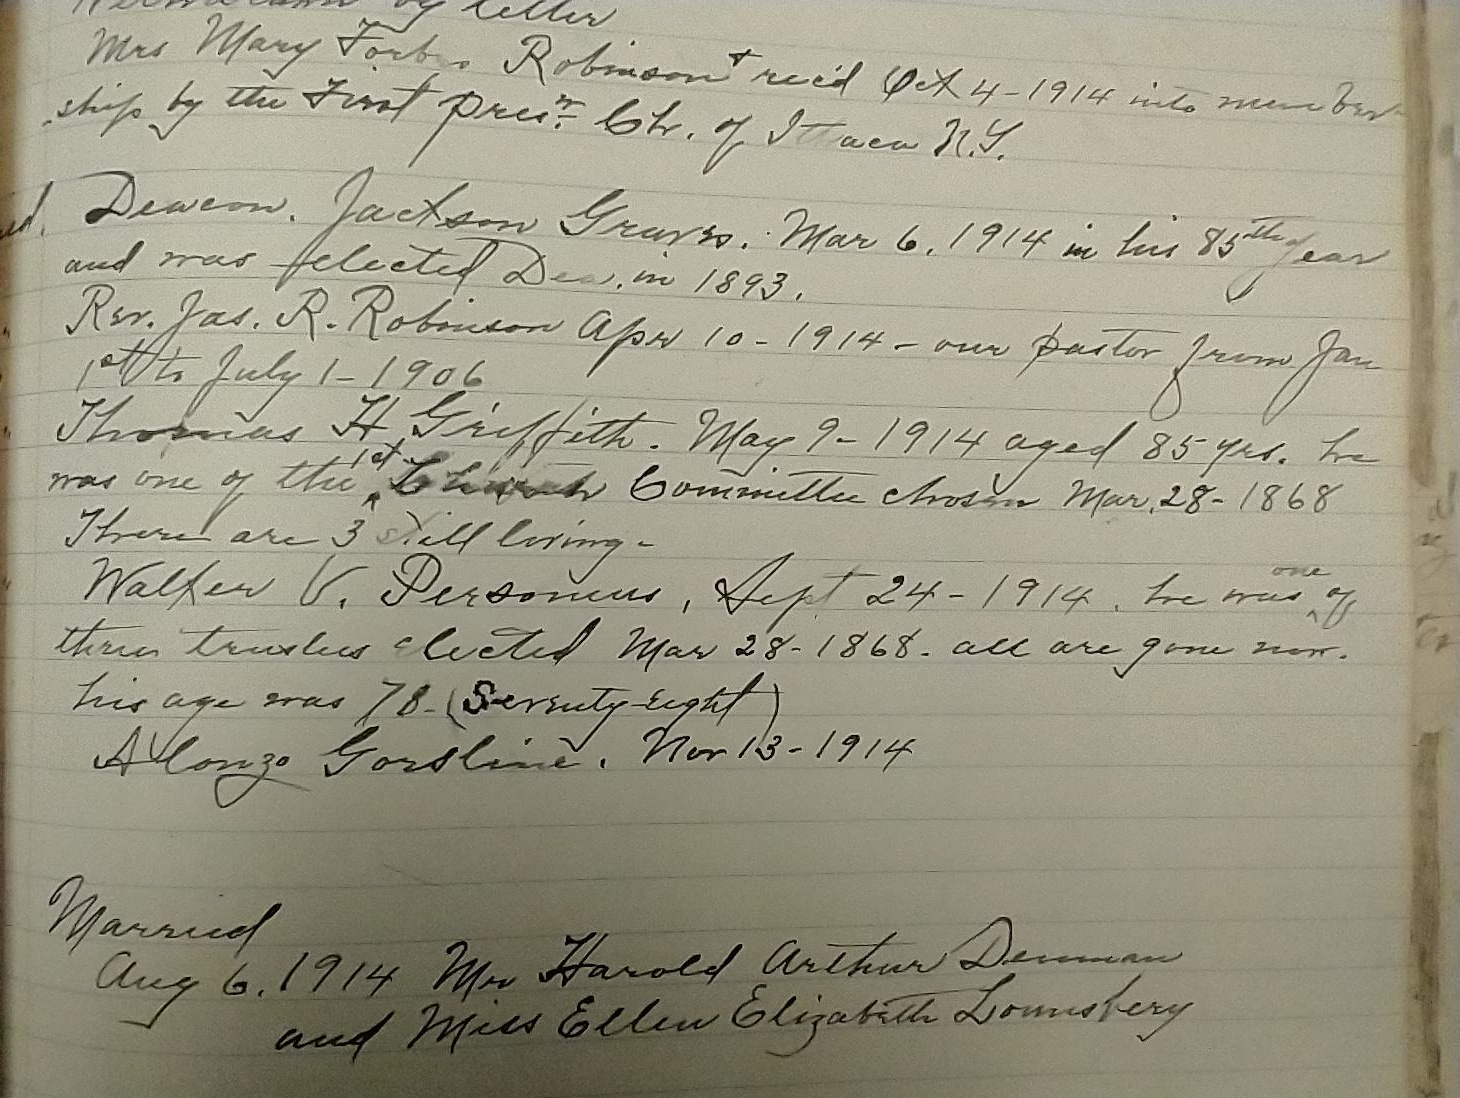 by letter
Mrs Mary Forbes Robinson + rec'd Oct 4-1914 into member-
ship by the First Presn. Ch. of Ithaca N.Y.
Deacon. Jackson Graves. Mar 6, 1914 in his 85th year
and was elected Dea. in 1893.
Rev. Jas. R. Robinson Apr 10-1914 - our pastor from Jan
1st to July 1-1906
Thomas H Griffith. May 9-1914 aged 85 yrs. he
was one of the 1st Church Committee chosen Mar. 28-1868
There are 3 still living-
Walter V. Personius, Sept 24-1914. he was one of
three trustees elected Mar 28-1868. all are gone now.
his age was 78- (Seventy-eight)
Alonzo Gorsline. Nov 13-1914
Married
Aug 6. 1914 Mr Harold Arthur Denman
and Miss Ellen Elizabeth Lounsbery